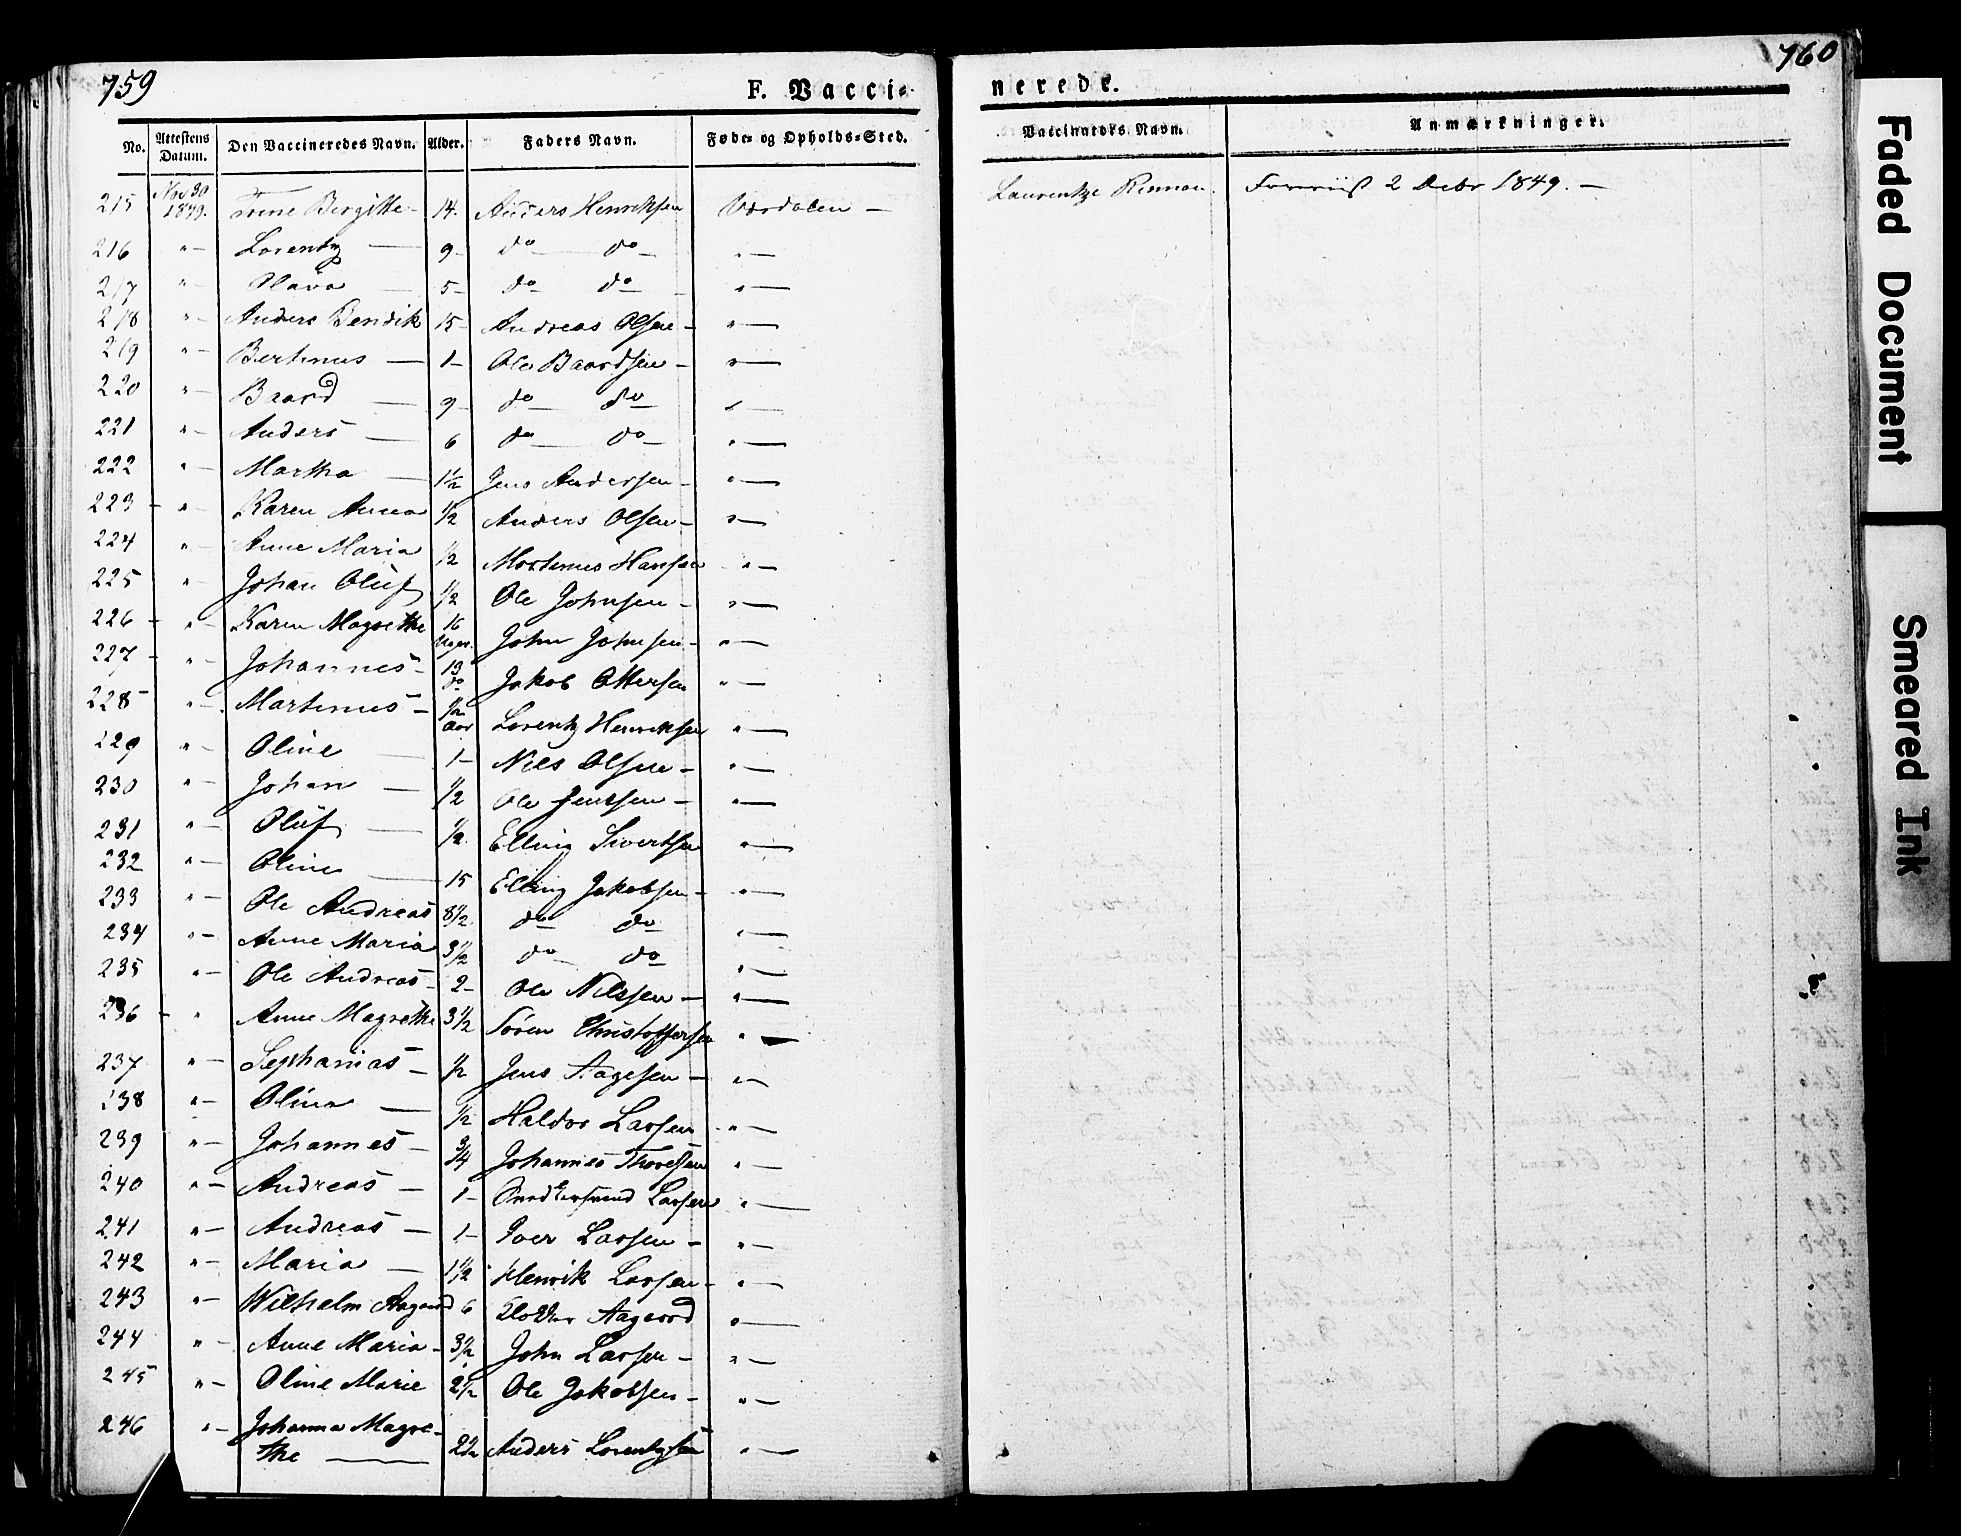 759
F. Vacci-
No. Attestens Datum. Den Vaccineredes Navn. Alder. Faders Navn. Føde- og Opholds-Sted.
215 Nov 30 1849. Trine Bergitte - 14. Anders Henriksen Værdalen -
216 " - Lorentz - 9 - do do " -
217 " - Olava - 5 - do do " -
218 " - Anders Bendik 15 - Andreas Olsen - " -
219 " - Bertinus - 1 - Ole Baardsen - " -
220 " - Baard - 9 - do do " -
221 " - Anders - 6 do do " -
222 " - Martha - 1½ Jens Andersen - " -
223 - " - Karen Anna ½ Anders Olsen - " -
224 " - Anne Maria ½ Mortinus Hansen " -
225 " - Johan Oluf ½ Ole Johnsen - " -
226 - " - Karen Magrethe 16 Uger. John Johnsen - " -
227 - " - Johannes - 13 do Jakob Ottersen " -
228 - " - Martinus - ½ Aar Lorentz Henriksen " -
229 " - Oline - 1 - Nils Olsen - " -
230 " - Johan - ½ Ole Jenssen - " -
231 " - Oluf - ½ Elling Sivertsen " -
232 " - Oline - 15 Elling Jakobsen - " -
233 " - Ole Andreas 8½ do do " -
234 " - Anne Maria 3½ do do " -
235 " - Ole Andreas - 2 - Ole Nilssen - " -
236 - " Anne Magrethe 3½ Sören Christoffersen " -
237 " - Sephanias - ½ Jens Aagesen - " -
238 " - Olina - ½ Haldor Larsen " -
239 " - Johannes - ¾ Johannes Thoresen " -
240 " - Andreas - 1 - Larsen " -
241 " - Andreas - 1 - Iver Larsen - " -
242 " - Maria - 1½ Henrik Larsen - " -
243 " - Wilhelm Aagaard 6 Aagaard " -
244 " - Anne Maria - 3½ John Larsen - " -
245 " - Oline Marie 2½ Ole Jakobsen - " -
246 " - Johanna Magre-
the - 2½ Anders Lorentzsen " -
760
nerede.
Vaccinators Navn. Anmærkninger.
Laurentze Rinnan. 2 Debr 1849. -
Faded Document
Smeared Ink